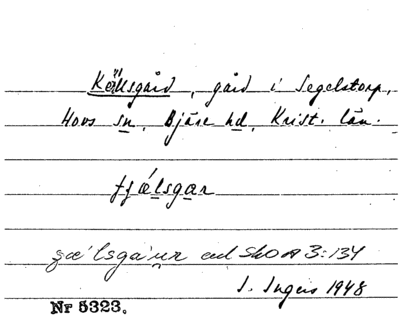 Källsgård, gård i Segelstorp,
Hovs sn, Bjäre hd, Krist. län.
fjǽlsgar
enl SkOA 3:134
I. Ingers 1948
Nr 5323.